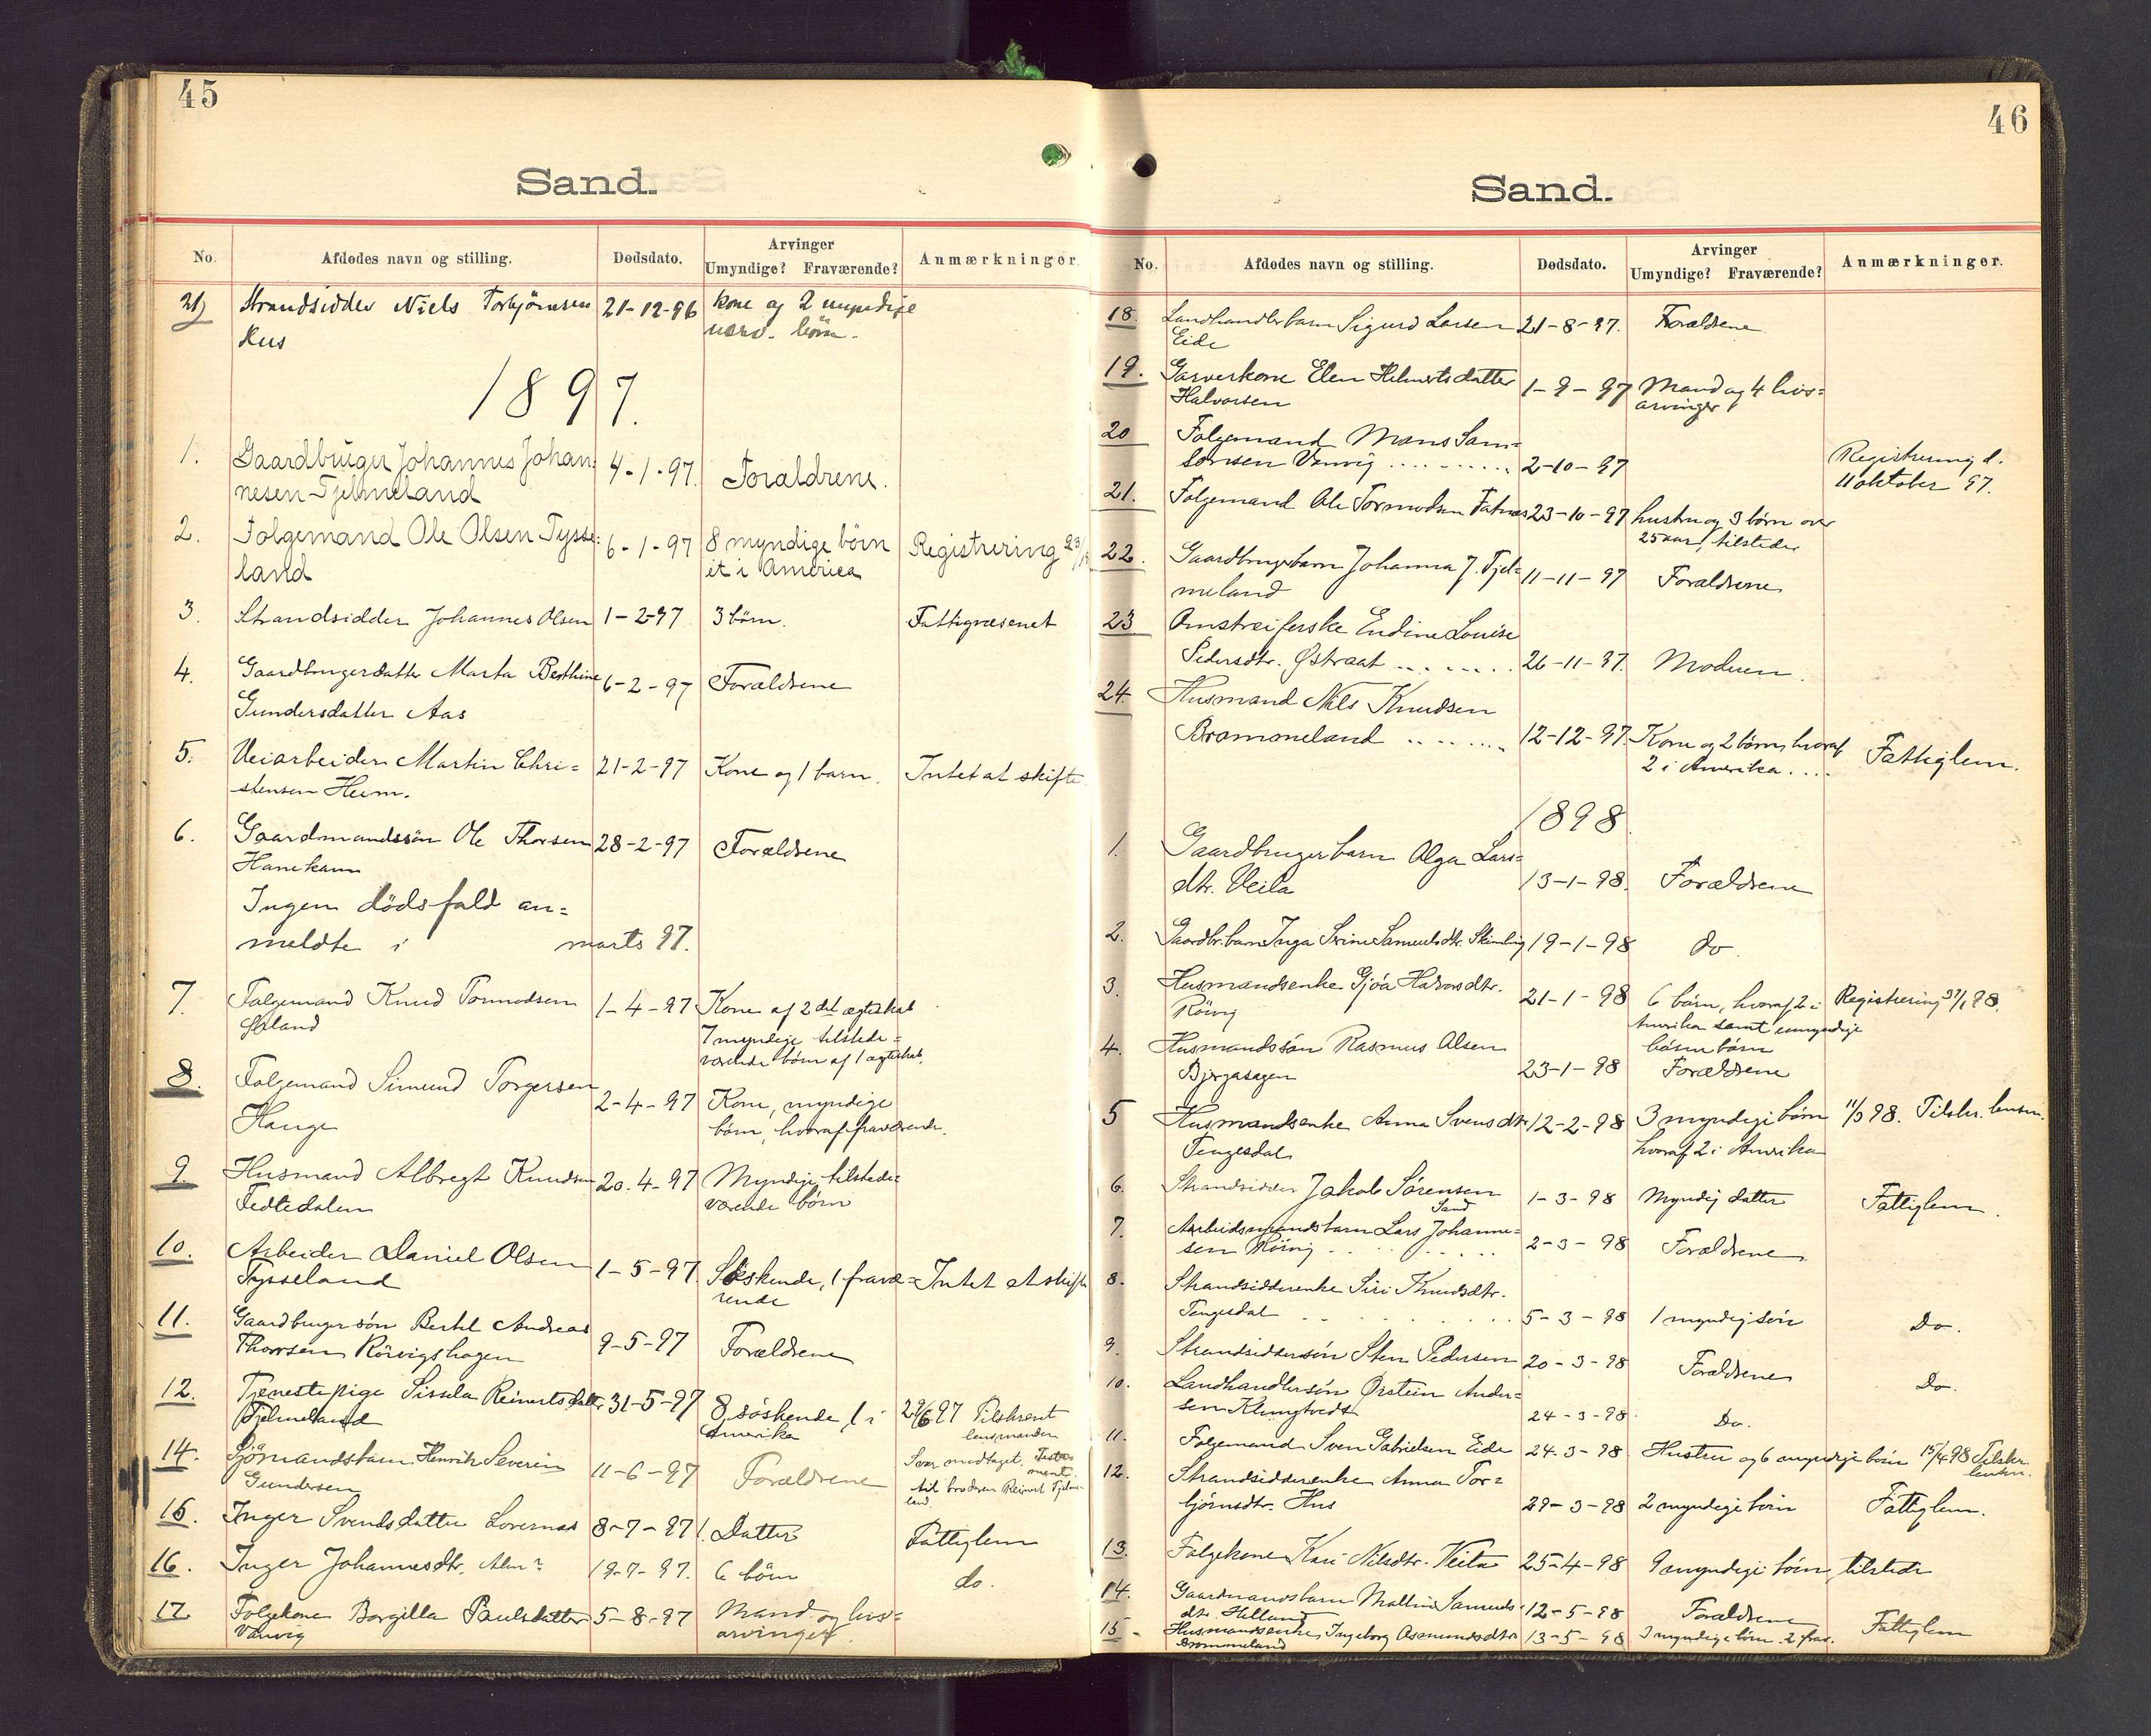 45
Sand.
No. Afdødes navn og stilling. Dødsdato. Arvinger Umyndige? Fraværende? Anmærkninger.
21) Strandsidder Niels Torbjörnsen 21-12-96 kone og 2 myndige
Hus nærv. börn.
1897.
1. Gaardbruger Johannes Johan- 4-1-97. Foraldrene.
nesen Tjelmeland
2. Folgemand Ole Olsen Tysse- 6-1-97 8 myndige börn Registrering
land et i America
3. Strandsidder Johannes Olsen 1-2-97 3 börn. Fattigvæsenet
4. Gaardbrugerdatter Marta Berthine 6-2-97 Forældrene
Gundersdatter Aas
5. Veiarbeider Martin Chri= 21-2-97 Kone og 1 barn. Intet at skifte
stensen Heim.
6. Gaardmandssön Ole Thorsen 28-2-97 Forældrene
Hanekam
Ingen dödsfald an=
meldte i marts 97.
7. Folgemand Knud Tormodsen 1-4-97 Kone af 2det ægteskab
7 myndige tilstede=
værende börn af 1 ægteskab.
8. Folgemand Simund Torgersen 2-4-97 Kone, myndige
Hauge börn, hvoraf fraværende.
9. Husmand Albregt Knudsen 20.4-97 Myndige tilstede=
Fedtedalen værende börn
10. Arbeider Daniel Olsen 1-5-97 Söskende, 1 fravæ= Intet at skifte
Tysseland rende
11. Gaardbrugersön Bertel Andreas 9-5-97 Forældrene
Thorsen Rörvigshagen
12. Tjenestepige Sissela Reinertsdatter 31-5-97 8 söskende, 1 i 29/6 97 Tilskrevet
Tjelmeland Amerika lensmanden
14. Sjömandsbarn Henrik Severin 11-6-97 Forældrene Svar modtaget. Testament
Gundersen til broderen Reinert Tjelme-
land.
15. Inger Svendsdatter Lovernes 8-7-97 1 Datter Fattiglem
16. Inger Johannesdtr. 19-7-97. 6 börn do.
17. Folgekone Borgilla Paulsdatter 5-8-97 Mand og livs=
Vanvig arvinger.
46
Sand.
No. Afdødes navn og stilling. Dødsdato. Arvinger Umyndige? Fraværende? Anmærkninger.
18. Landhandlerbarn Sigurd Larsen 21-8-97. Forældrene
Eide
19. Garverkone Elen Helmertsdatter 1-9-97 Mand og 4 livs=
Halvorsen arvinger
20 Folgemand Mons Sam=
sonsen Vanvig .......... 2-10-97 Registrering d.
11 oktober 97.
21. Folgemand Ole Tormodsen Fatnes 23-10-97 hustru og 3 börn over
25 aar, tilstede
22. Gaardbrugerbarn Johanna J. Tjel= 11-11-97 Forældrene
meland
23 Omstreiferske Endine Louise
Pedersdtr. Østraat ....... 26-11-97. Moderen.
24. Husmand Nils Knudsen
Brommeland ........ 12-12-97. Kone og 2 börn, hvoraf Fattiglem.
2 i Amerika....
1898.
1. Gaardbrugerbarn Olga Lars=
dtr. Veila 13-1-98. Forældrene
2. Gaardbr.barn Inga Serine Samuelsdtr. 19-1-98 do.
3. Husmandsenke Gjöa Halvorsdtr. 21-1-98 6 börn, hvoraf 2 i Registrering 31/1 98.
Rörvig Amerika samt umyndige
börnebörn
4. Husmandssön Rasmus Olsen 23-1-98 Forældrene
Bjergasagen
5 Husmandsenke Anna Svensdtr 12-2-98 3 myndige börn 11/3 98. Tilskr. lensm.
Tengesdal hvoraf 2 i Amerika
6. Strandsidder Jakob Sörensen 1-3-98 Myndig datter Fattiglem.
Sand
7. Arbeidsmandsbarn Lars Johanne=
sen Rörvig 2-3-98 Forældrene
8. Strandsidderenke Siri Knudsdtr.
Tengesdal 5-3-98 1 myndig sön Do.
9. Strandsiddersön Sten Pedersen 20-3-98 Forældrene Do.
10. Landhandlersön Østein Ander=
sen Klungtvedt 24-3-98. Do.
11. Folgemand Sven Gabrielsen Eide 24-3-98 Hustru og 6 myndige börn 15/4 98 Tilskr.
lensm.
12. Strandsidderenke Anna Tor=
björnsdtr. Hus 29-3-98 2 myndige börn Fattiglem.
13. Folgekone Kari Nilsdtr. Veita 25-4-98 9 myndige börn, tilstede
14. Gaardmandsbarn Malline Samuels- 12-5-98 Forældrene
dtr. Helland
15- Husmandsenke Ingeborg Osmundsdtr 13-5-98 3 myndige börn. 2 frav. Fattiglem
Brommeland